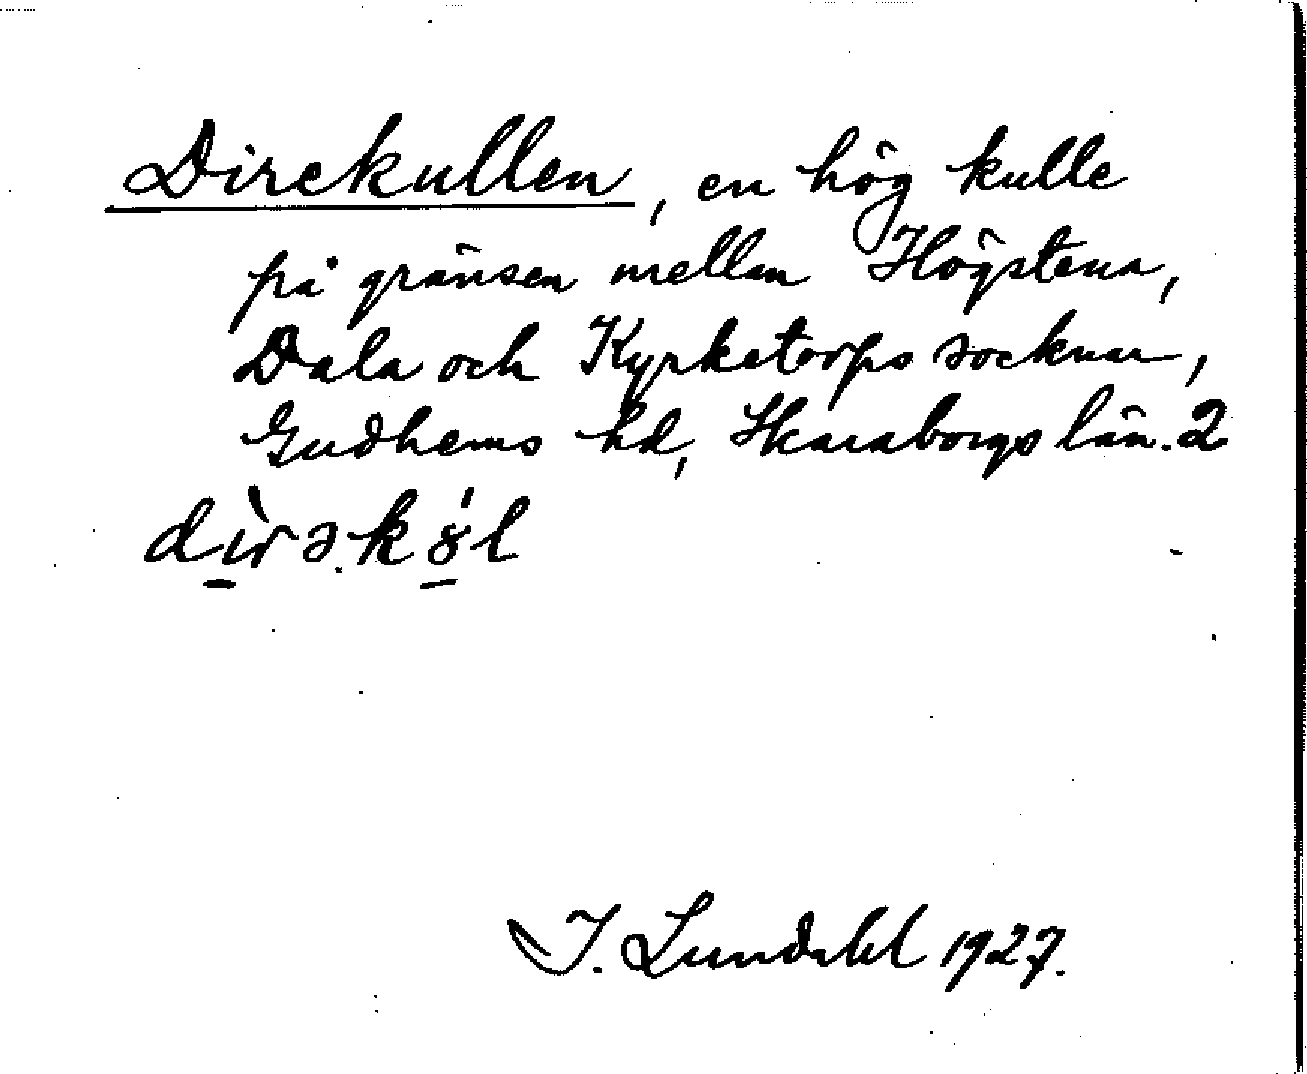 Direkullen, en hög kulle
på gränsen mellan Högstena,
Dala och Kyrketorps socknar,
Gudhems hd, Skaraborgs län. 2
dìrə.kɣ́l
I. Lundahl 1927.